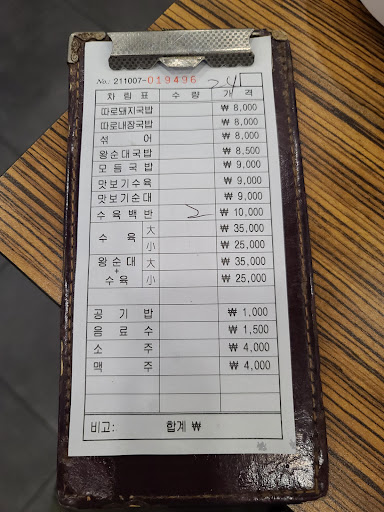 No. 211007-019496
차림표 수량 가격
따로돼지국밥 ₩ 8,000
따로내장국밥 ₩ 8,000
섞어 ₩ 8,000
왕순대국밥 ₩ 8,500
모듬국밥 ₩ 9,000
맛보기수육 ₩ 9,000
맛보기순대 ₩ 9,000
수육백반 2 ₩ 10,000
수육 大 ₩ 35,000
小 ₩ 25,000
왕순대 大 ₩ 35,000
+
수육 小 ₩ 25,000
공기밥 ₩ 1,000
음료수 ₩ 1,500
소주 ₩ 4,000
맥주 ₩ 4,000
비고: 합계 ₩